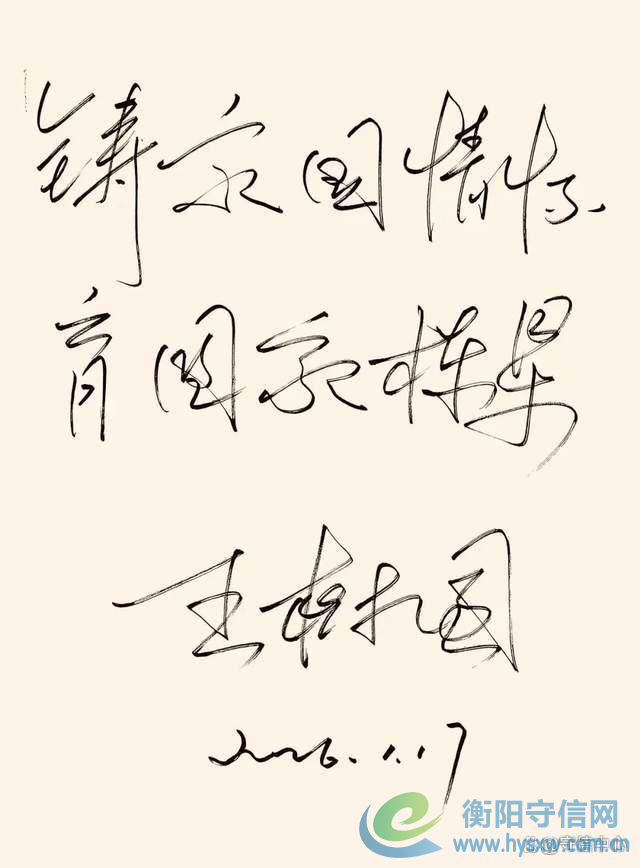 铸家国情怀
育国家栋梁
王 国
2026.1.17
衡阳守信网
www.hysxw.com
@守信中心